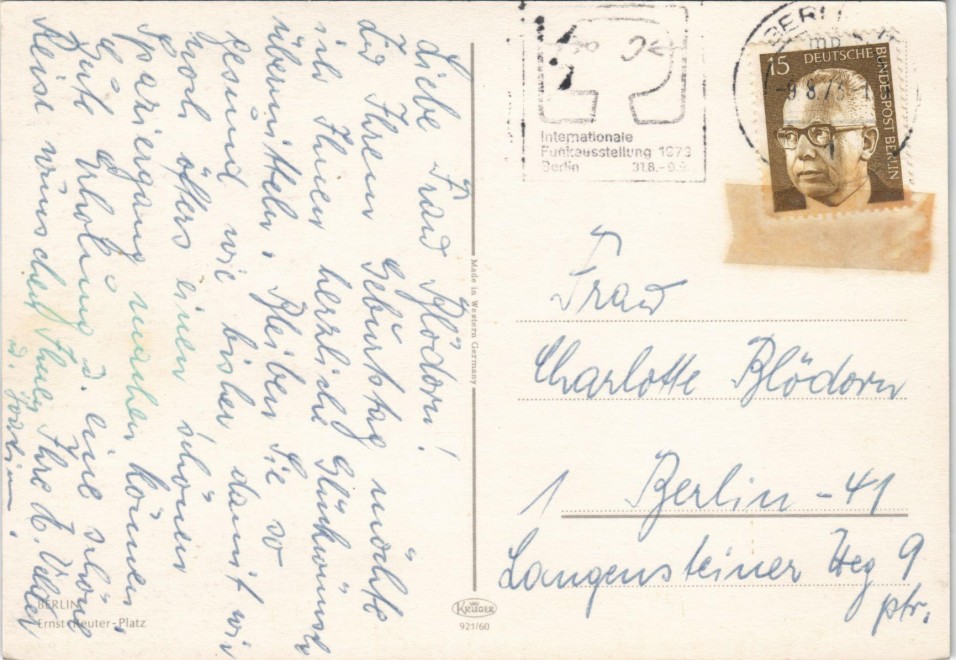 Liebe Frau Blödorn!
Zu Ihrem Geburtstag möchte
ich Ihnen herzliche Glückwünsche
übermitteln. Bleiben Sie so
gesund wie bisher damit wir
noch öfters einen schönen
Spaziergang machen können.
Gute Erholung u. eine schöne
Reise wünschet Ihnen Ihre
u.
BERLIN
Ernst-Reuter-Platz
Made in Western Germany
KRÜGER
921/60
Internationale
Funkausstellung 1973
Berlin 31.8.-9.9.
BERLIN
-9 8.73
15 DEUTSCHE BUNDESPOST BERLIN
Frau
Charlotte Blödorn
1 Berlin-41
Langensteiner Weg 9
ptr.